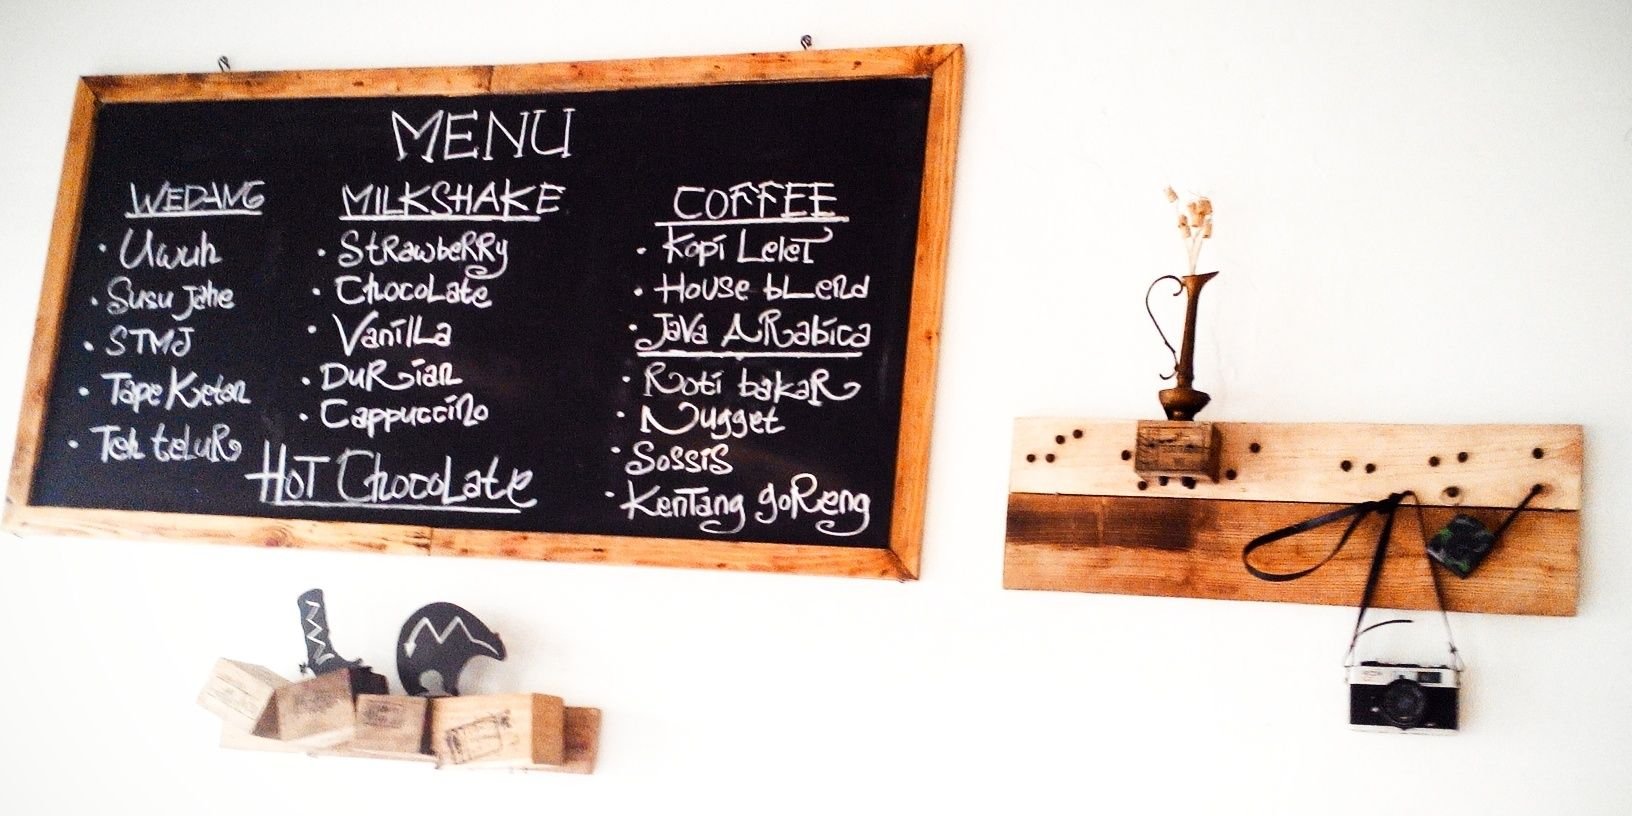 MENU
WEDANG
• Uwuh
• Susu Jahe
• STMJ
• Tape Ketan
• Teh teluR
MILKSHAKE
• StRawbeRRy
• ChocoLate
• VanilLa
• DuRian
• Cappuccino
HoT ChocoLate
COFFEE
• Kopi LeleT
• House bLend
• Java ARabica
• Roti bakaR
• Nugget
• Sossis
• KenTang goReng